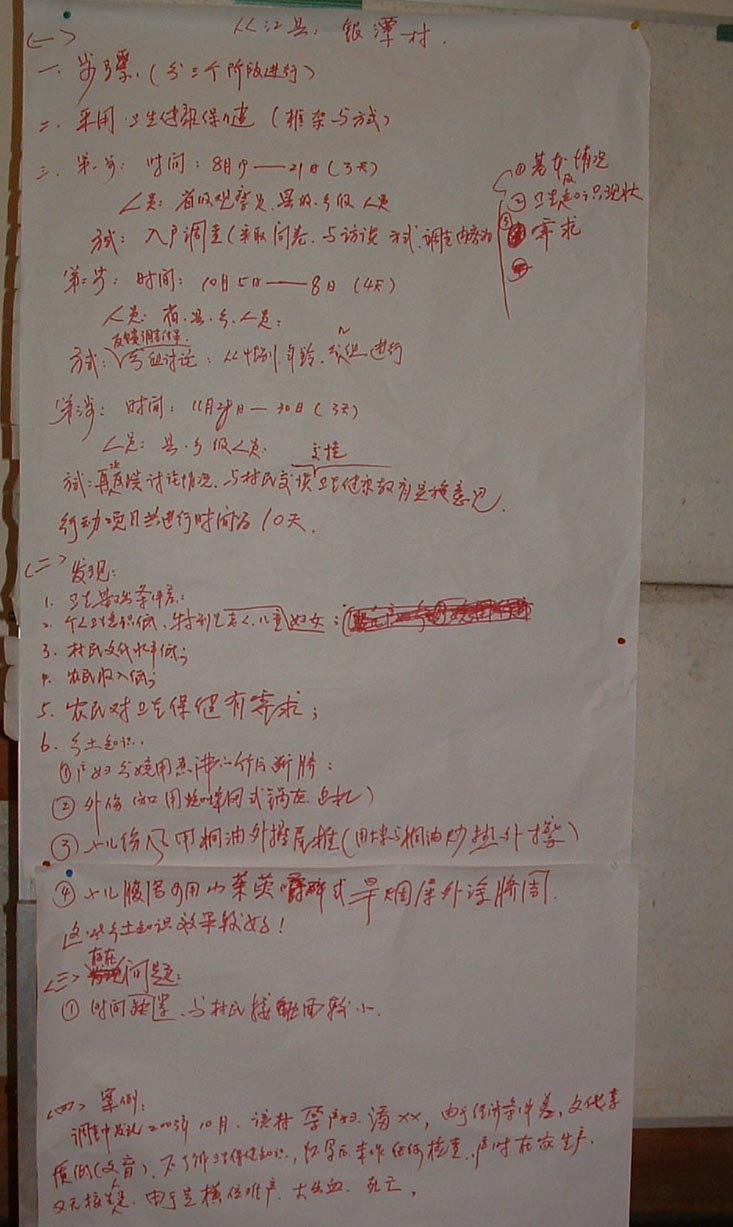 从江县：银潭村.
(一)
一. 步骤. (分三个阶段进行)
二. 采用卫生健 保 (框架与方式)
三. 第一步: 时间: 8月19——21日(3天)
人员: 省级观察员. 县级. 乡级人员
方式: 入户调查(采取问卷. 与访谈方式, 调查内容为
①基本情况
②卫生知识现状
③需求
第二步: 时间: 10月5日——8日 (4天)
人员: 省. 县. 乡. 人员:
反馈调查结果.
方式: 分组讨论: 从性别. 年龄. 进行
第三步: 时间: 11月28日—30日(3天)
人员: 县. 乡级人员.
方式: 再次反馈讨论情况. 与村民交谈卫生健康教育 意见.
行动项目共进行时间为10天.
(二) 发现:
1. 卫生 条件差:
2. 个人卫生意识低、特别是老人.儿童妇女;
3. 村民文化水平低;
4. 农民收入低;
5. 农民对卫生保健有需求;
6. 乡土知识.
①产妇分娩用煮沸 竹片断脐:
②外伤(如用 锅灰止 )
③小儿伤风用桐油外擦尾椎(用 与桐油炒热外擦)
④小儿腹 可用山茱萸嚼碎或旱烟屎外涂脐周.
这些乡土知识效果较好!
(三) 存在问题:
①时间 、与村民接触面较小.
(四) 案例:
调查中发现2003年10月. 该村孕产妇. 潘××, 由于经济条件差, 文化素
质低(文盲)、不了解卫生保健知识, 怀孕后未作任何检查. 产时在家生产.
又无接生员. 由于是横位难产. 大出血. 死亡.